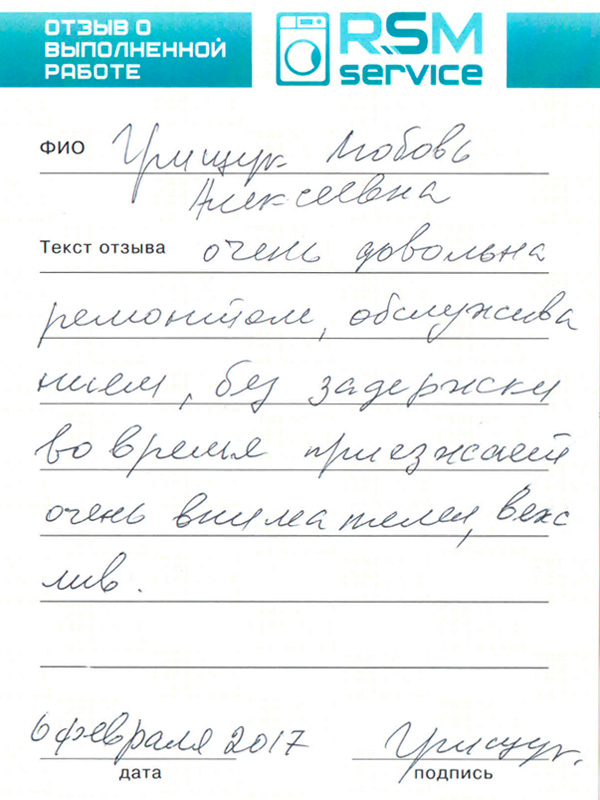 ОТЗЫВ О
ВЫПОЛНЕННОЙ
РАБОТЕ
RSM
service
ФИО Грищук Любовь
Алексеевна
Текст отзыва очень довольна
ремонтом, обслужива
нием, без задержки
во время приезжает
очень внимателен, веж
лив.
6 февраля 2017 Грищук.
дата подпись